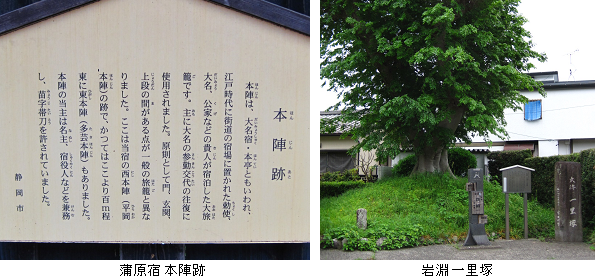 本陣跡
本陣は、大名宿・本亭ともいわれ、
江戸時代に街道の宿場に置かれた勅使、
大名、公家などの貴人が宿泊した大旅
籠です。主に大名の参勤交代の往復に
使用されました。原則として門、玄関、
上段の間がある点が一般の旅籠と異な
りました。ここは当宿の西本陣(平岡
本陣)の跡で、かつてはここより百m程
東に東本陣(多芸本陣)もありました。
本陣の当主は名主、宿役人などを兼務
し、苗字帯刀を許されていました。
静岡市
一里塚
蒲原宿 本陣跡
岩淵一里塚